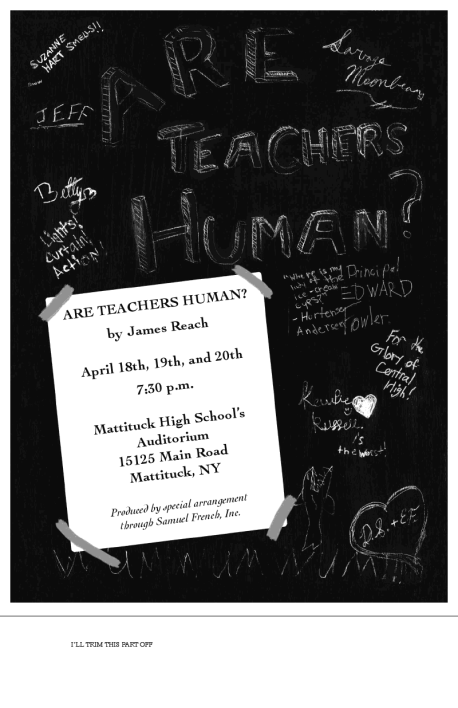 SUZANNE
HART SMELLS!!
ARE
Savoya
Moonbeam
JEFF
TEACHERS
Betty
HUMAN?
Lights!
Curtain!
Action!
Principal
EDWARD
Fowler.
- Hortense
Anderson
ARE TEACHERS HUMAN?
by James Reach
April 18th, 19th, and 20th
7:30 p.m.
Mattituck High School's
Auditorium
15125 Main Road
Mattituck, NY
Produced by special arrangement
through Samuel French, Inc.
For the
Glory of
Central
High!
Russell
is
the worst!
D.S. + E.F.
I'LL TRIM THIS PART OFF